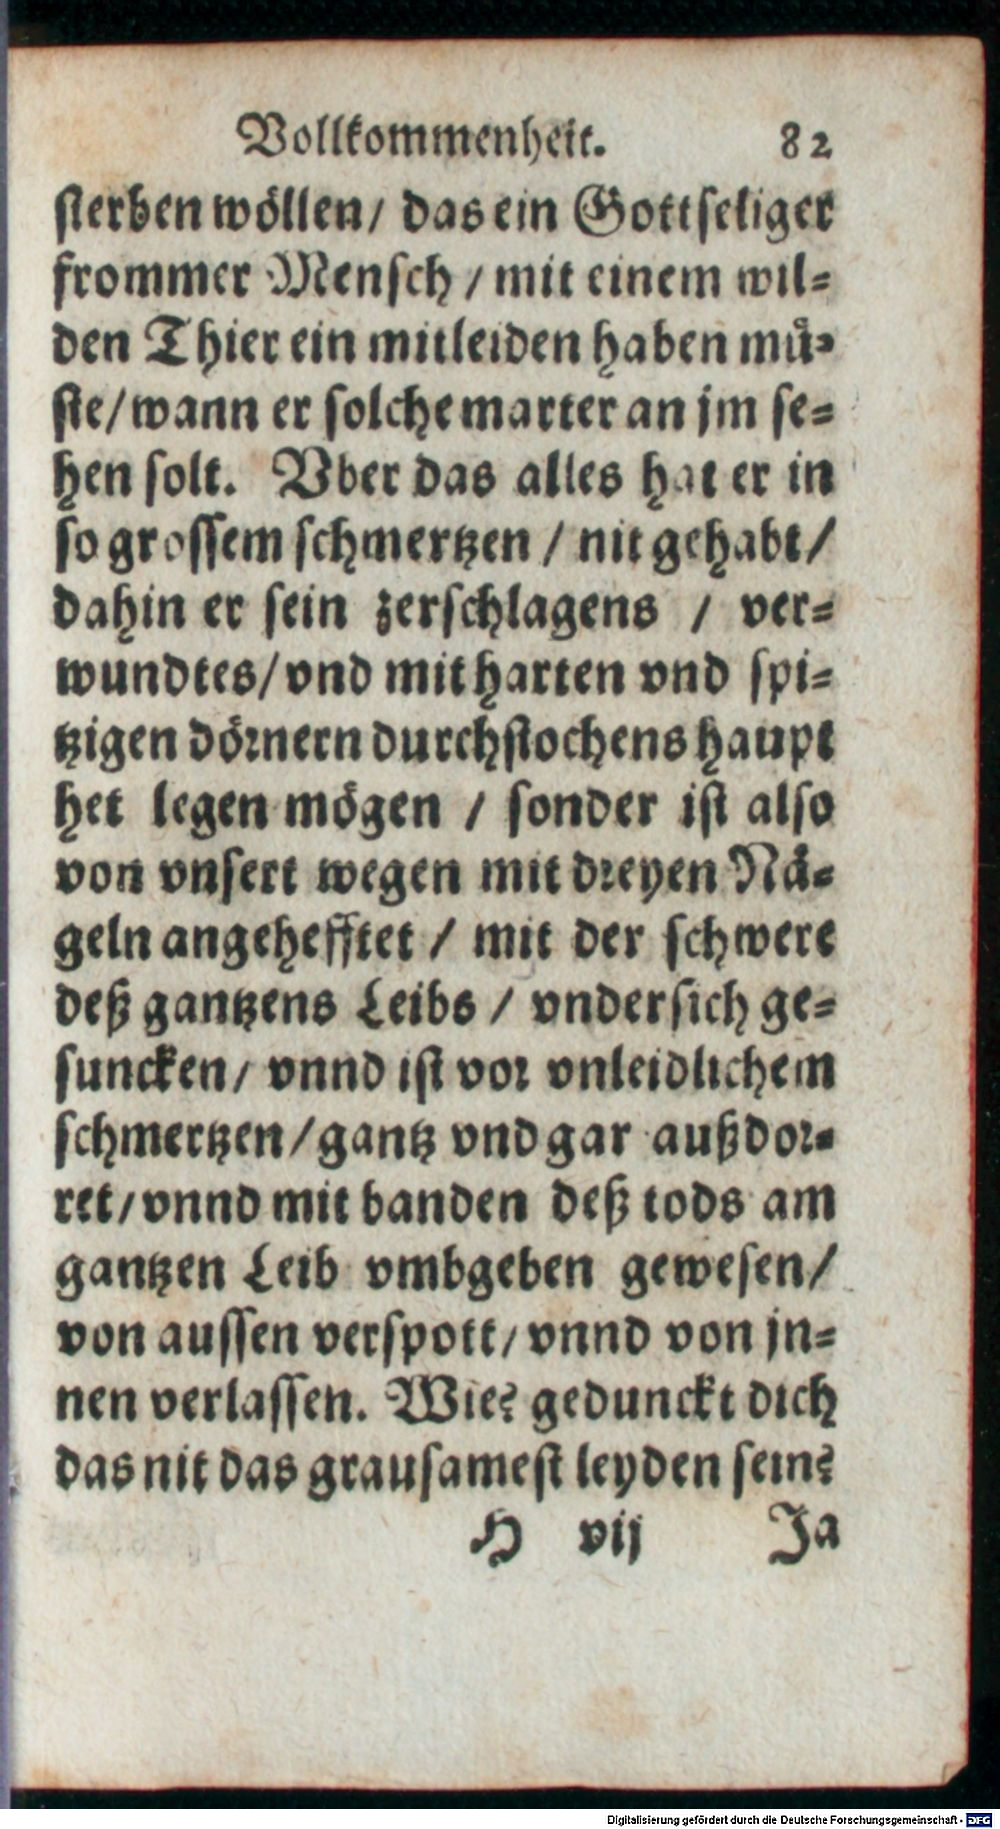 Vollkommenheit. 82
sterben wöllen/ das ein Gottseliger
frommer Mensch / mit einem wil-
den Thier ein mitleiden haben mü-
ste/ wann er solche marter an jm se-
hen solt. Vber das alles hat er in
so grossem schmertzen / nit gehabt /
dahin er sein zerschlagens / ver-
wundtes/ vnd mit harten vnd spi-
tzigen dörnern durchstochens haupt
het legen mögen / sonder ist also
von vnsert wegen mit dreyen Nä-
geln angehefftet / mit der schwere
deß gantzens Leibs / vndersich ge-
suncken/ vnnd ist vor vnleidlichem
schmertzen/ gantz vnd gar außdor-
ret/ vnnd mit banden deß tods am
gantzen Leib vmbgeben gewesen/
von aussen verspott/ vnnd von jn-
nen verlassen. Wie? gedunckt dich
das nit das grausamest leyden sein?
H vij Ja
Digitalisierung gefördert durch die Deutsche Forschungsgemeinschaft - DFG